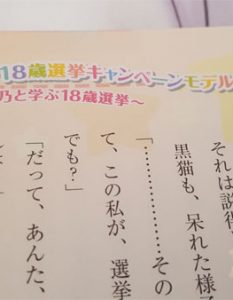 18歳選挙キャンペーンモデル
乃と学ぶ18歳選挙～
それは説得
黒猫も、呆れた様子
「……………その
て、この私が、選挙
でも？」
「だって、あんた、